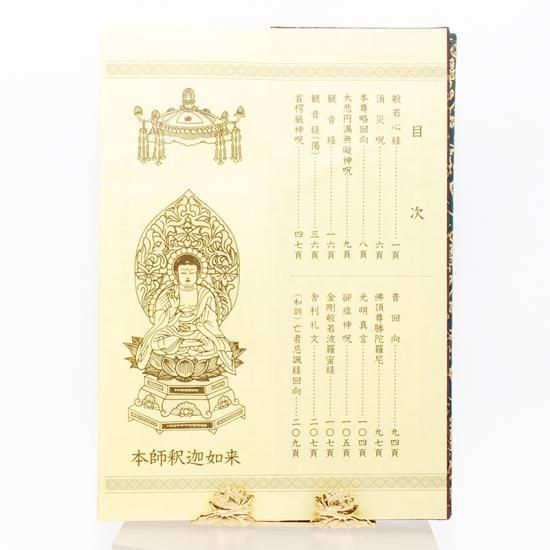 目次
般若心経…………一頁
消災呪…………六頁
本尊略回向…………八頁
大悲円満無礙神呪…………九頁
観音経…………一六頁
観音経(偈)…………三六頁
首楞厳神呪…………四七頁
普回向…………九四頁
佛頂尊勝陀羅尼…………九七頁
光明真言…………一〇四頁
卻瘟神呪…………一〇五頁
金剛般若波羅蜜経…………一〇七頁
舎利礼文…………二〇七頁
(和訓)亡者忌諷経回向…………二〇九頁
本師釈迦如来